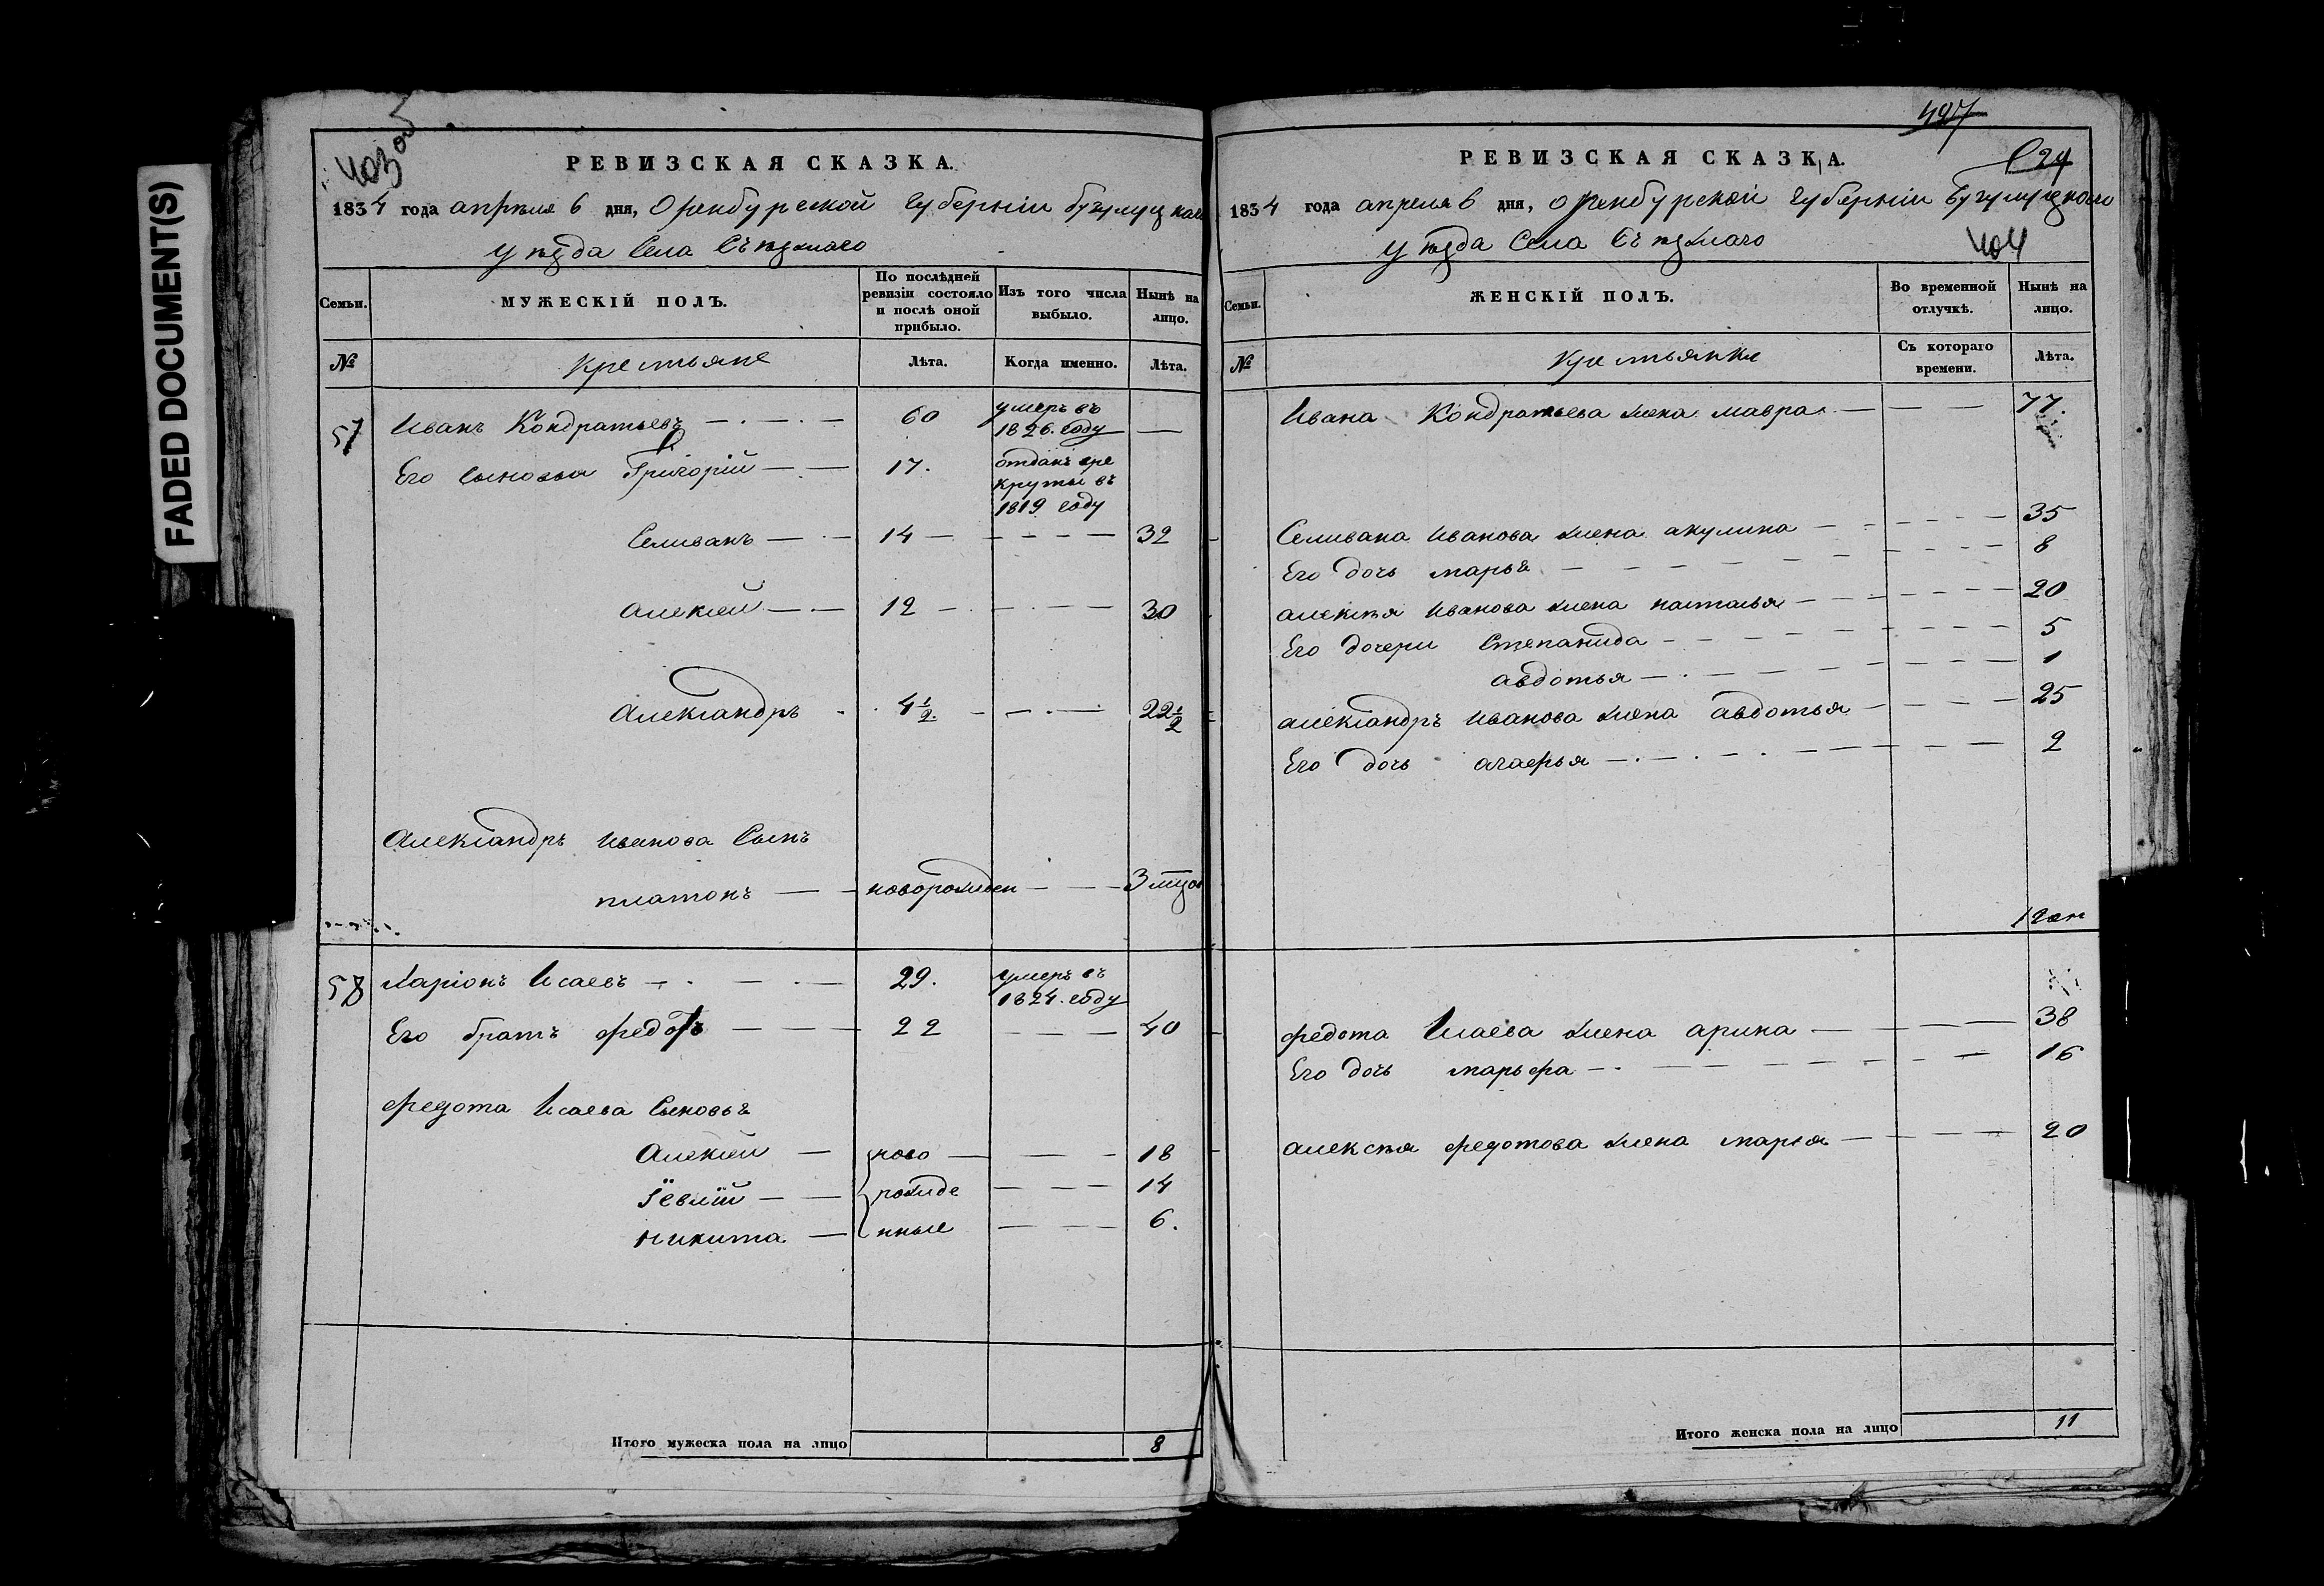 FADED DOCUMENT(S)
403 об
РЕВИЗСКАЯ СКАЗКА.
1834 года апреля 6 дня, Оренбургской губернии бугулуцкаго
уѣзда Села Съѣзжаго
Семьи.
МУЖЕСКІЙ ПОЛЪ.
По послѣдней ревизіи состояло и послѣ оной прибыло.
Изъ того числа выбыло.
Нынѣ на лицо.
№
Крестьяне
Лѣта.
Когда именно.
Лѣта.
57 Иванъ Кондратьевъ 60 умеръ въ 1826. году —
Его сыновья Григорій 17. отданъ в ре
круты въ
1819 году
Селиванъ 14 32
Алексей 12 30
Александръ 4 1/2. 22 1/2
Александръ Иванова Сынъ
платонъ новорожден 3 мцов
58 Ларіонъ Исаевъ 29. умеръ въ 1824. году
Его братъ Федотъ 22 40
Федота Исаева Сыновья
Алексей ново 18
рожде 14
Никита нные 6.
Итого мужеска пола на лицо 8
497
624
РЕВИЗСКАЯ СКАЗКА.
1834 года апреля 6 дня, оренбургской губерніи бугулуцкого
уѣзда Села Съѣзжаго
404
Семьи.
ЖЕНСКІЙ ПОЛЪ.
Во временной отлучкѣ.
Нынѣ на лицо.
№
Крестьянки
Съ котораго времени.
Лѣта.
Ивана Кондратьева жена мавра 77.
Селивана Иванова жена акулина 35
Его дочь марья 8
алексѣя Иванова жена настасья 20
Его дочери Степанида 5
авдотья 1
александръ Иванова жена авдотья 25
Его дочь агафья 2
федота Исаева жена арина 38
Его дочь марьфа 16
алексѣя федотова жена марья 20
Итого женска пола на лицо 11